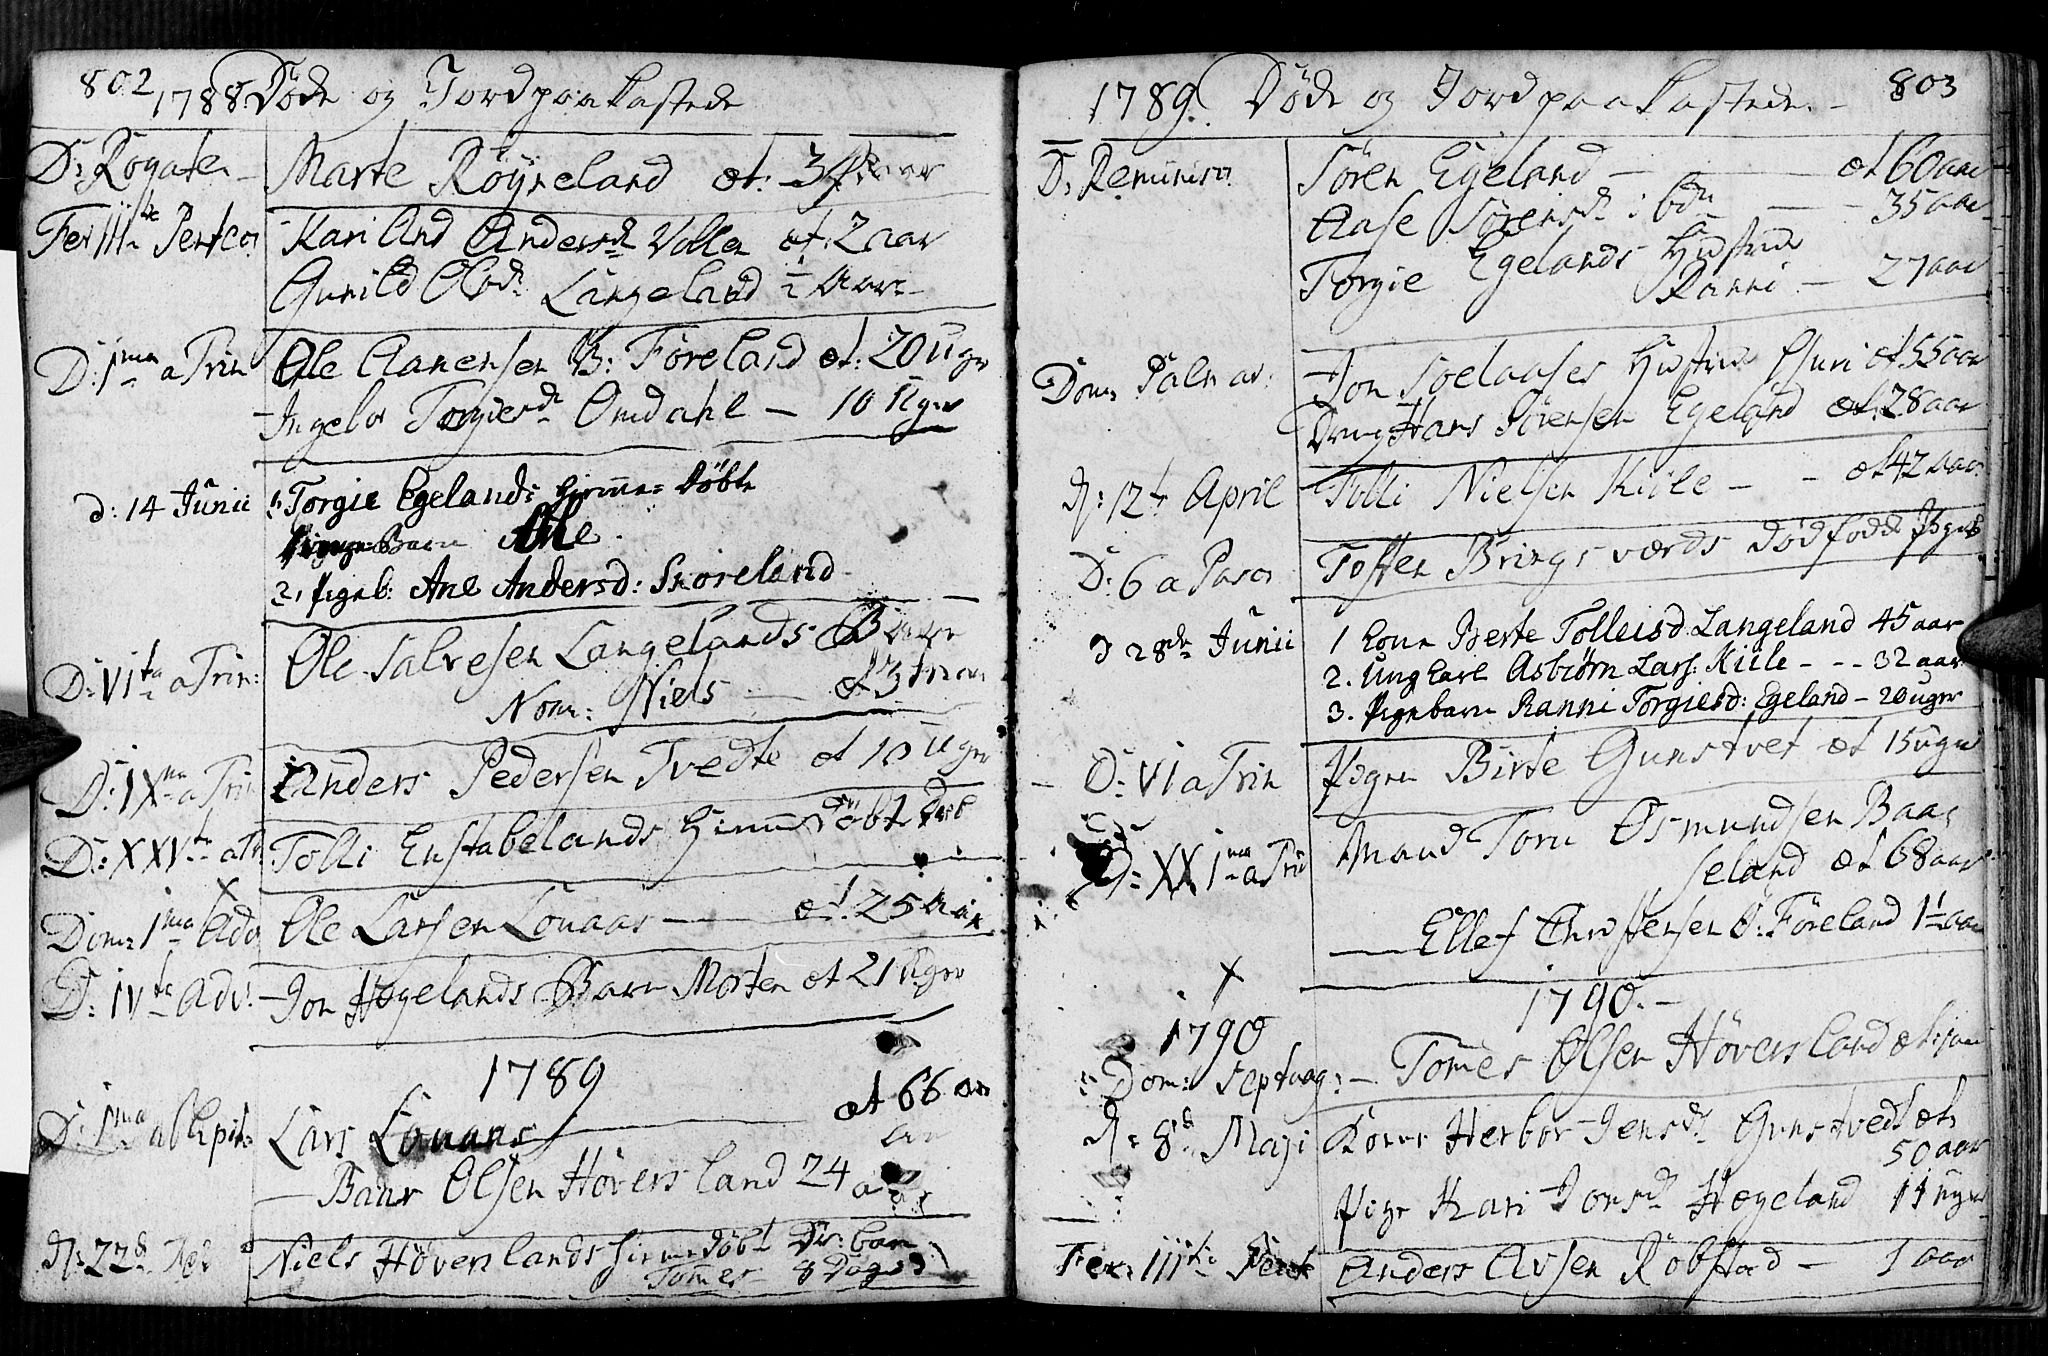 802
1788. Døde og Jordpaakastede
D: Rogate - Marte Røyneland æt: 3
Fer IIItie Pentec: Kari And Andersd: Vollen æt: 2 aar
Gunild Olsd: Langeland ½ Aar -
D: 1ma a Trin Ole Aanensen B: Føreland æt: 20 Uger
Ingebor Torgiersd: Omdahl - 10 Uger
d: 14 Junii 1. Torgie Egelands hiemme Døbte
Barn
2, Pigeb: Ane Andersd: Skoreland
D: VIta a Trin: Ole Salvesen Langelands Barn
Nom: Niels - æt 3
D: IXna a Trin Anders Pedersen Tvedte æt 10 Uger
D: XXVta a Tr Tolli Enstabelands Hiemmedøbt
Dom: 1ma Adv Ole Larsen Louaas - æt: 25 Aar
D: IVta Adv: Jon Hægelands Barn Morten æt 21 Uger
1789
D: 1ma ab Epih: Lars Louaas æt 66 aar
- Baar Olsen Høversland 24 aar
N: 22d Niels Høverslands hiemmedøbt Dr: barn
Tomes 8 Dage
1789. Døde og Jordpaakastede - 803
D: Reminisc: Søren Egeland - æt 60 aar
Aase Sørensd: ibd: - 35 aar
Torgie Egelands Hustrue
Ranni - 27 aar
Dom: Palmar: Jon Hustrue Guri æt 55 aar
Dreng Hans Sørensen Egeland æt: 28 aar
N: 12t April Tolli Nielsen Kiile - - æt 42 aar
D: 6 a Pasc: Tosten Bringsværds dødfødde Pigeb
d 28de Junii 1 Kone Berte Tolleisd: Langeland 45 aar
2. Ung Karl Asbiørn Lars: Kiile - - - 32 aar
3. Pigebarn Ranni Torgiesd: Egeland - 20 uger
D: VI a Trin Pigen Birte Gunstvet æt 15 uger
D: XX1ma a Trin Mand Toru Osmundsen Baas
seland æt 68 aar
- Ellef Christensen O: Føreland 1½ aar
1790. -
1790
Dom: Septuag: - Tomes Olsen Høversland
N: 8d Maji Konen Herbor Jensd: Gunstvedt æt:
50 aar
Pige Kari Jonsd: Hægeland 11 uger
Fer: IIItie Pent Anders Avsen Robstad - 1 aar